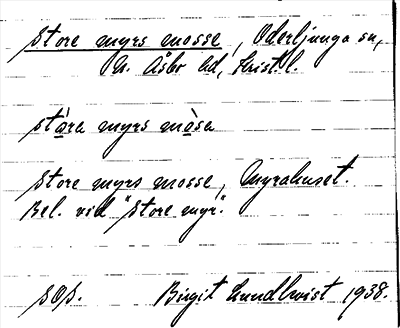 Store myrs mosse, Oderljunga sn,
N. Åsbo hd, Krist. l.
stòra myrs mòsa
Store myrs mosse, Myrahuset.
Bel. vid "Store myr".
SOS. Birgit Lundkvist 1938.